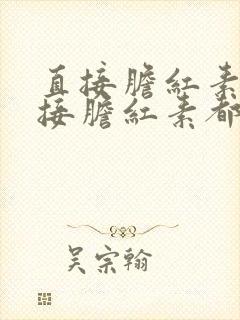 直接膽紅素
接膽紅素都
吳宗翰